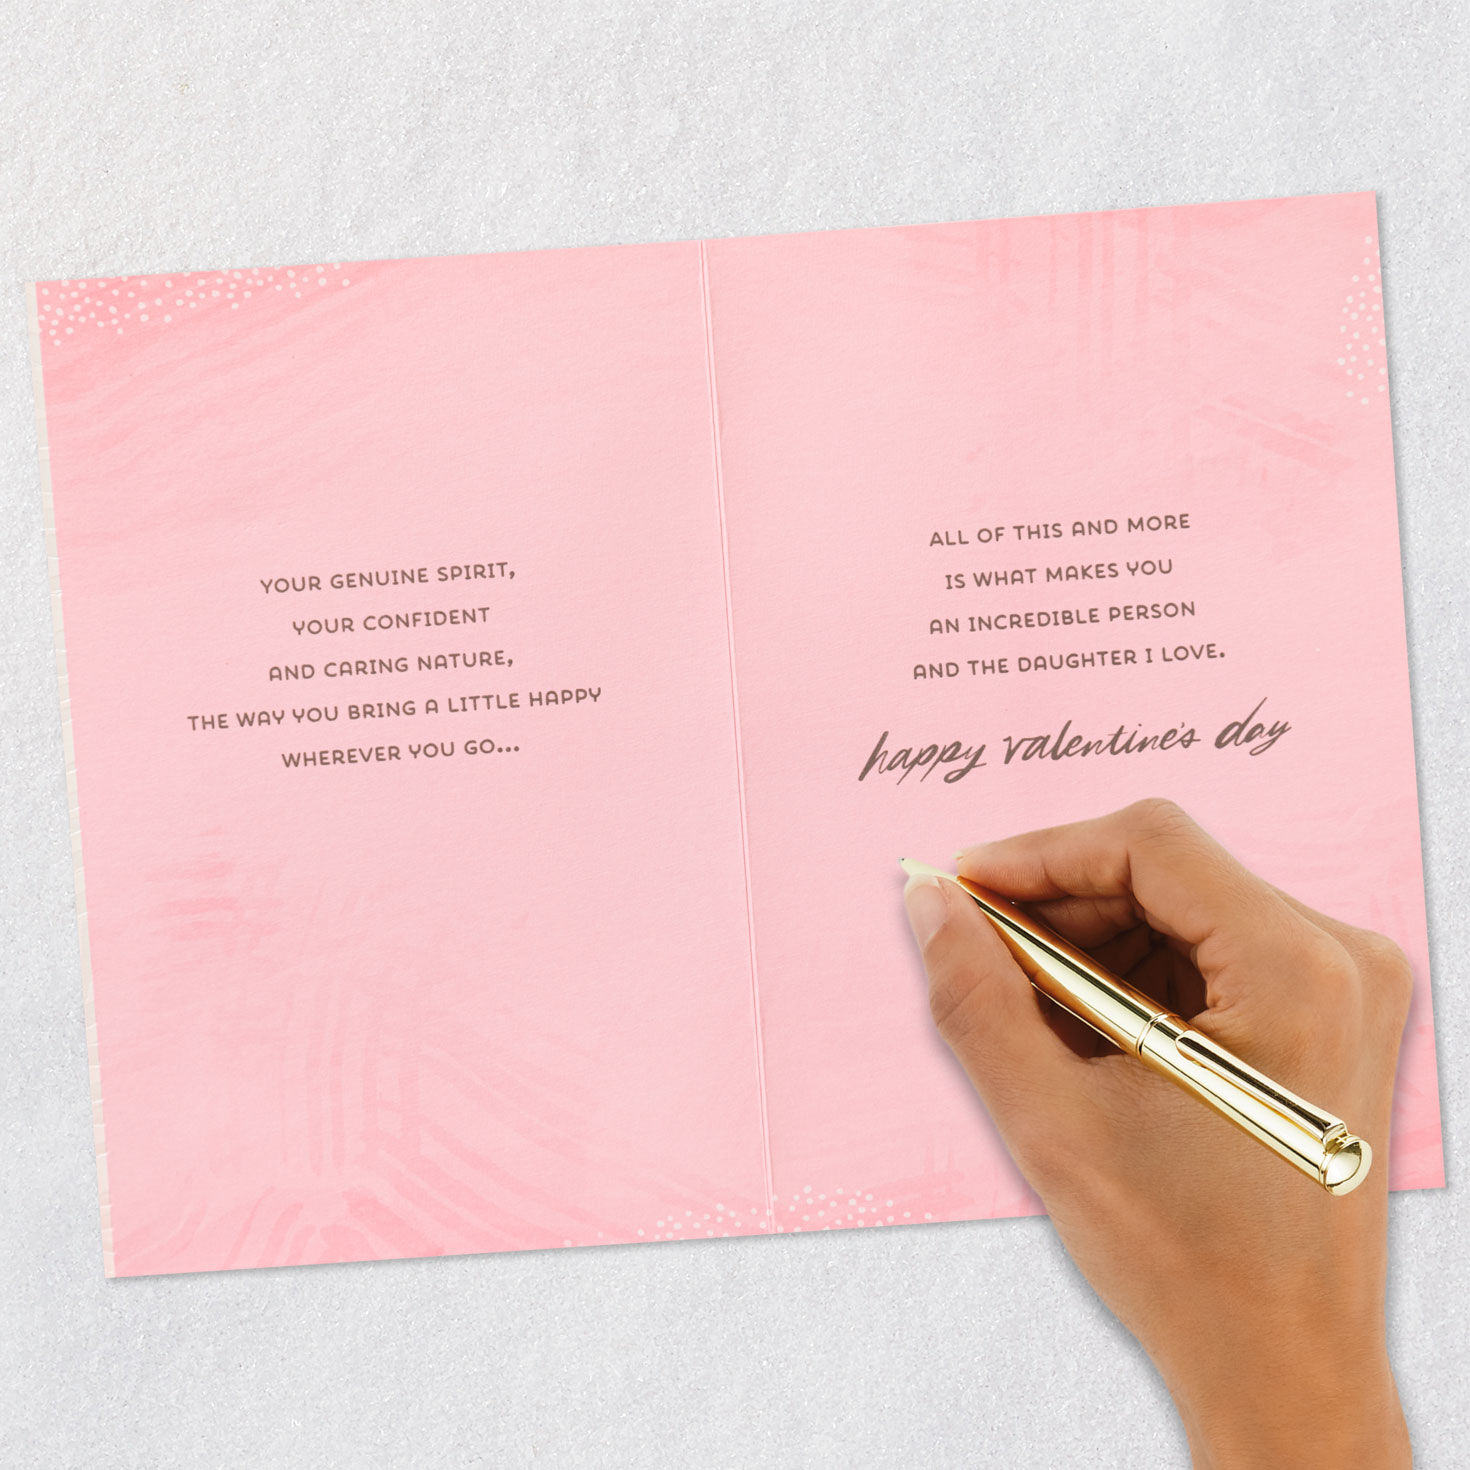 YOUR GENUINE SPIRIT,
YOUR CONFIDENT
AND CARING NATURE,
THE WAY YOU BRING A LITTLE HAPPY
WHEREVER YOU GO...
ALL OF THIS AND MORE
IS WHAT MAKES YOU
AN INCREDIBLE PERSON
AND THE DAUGHTER I LOVE.
happy valentine's day